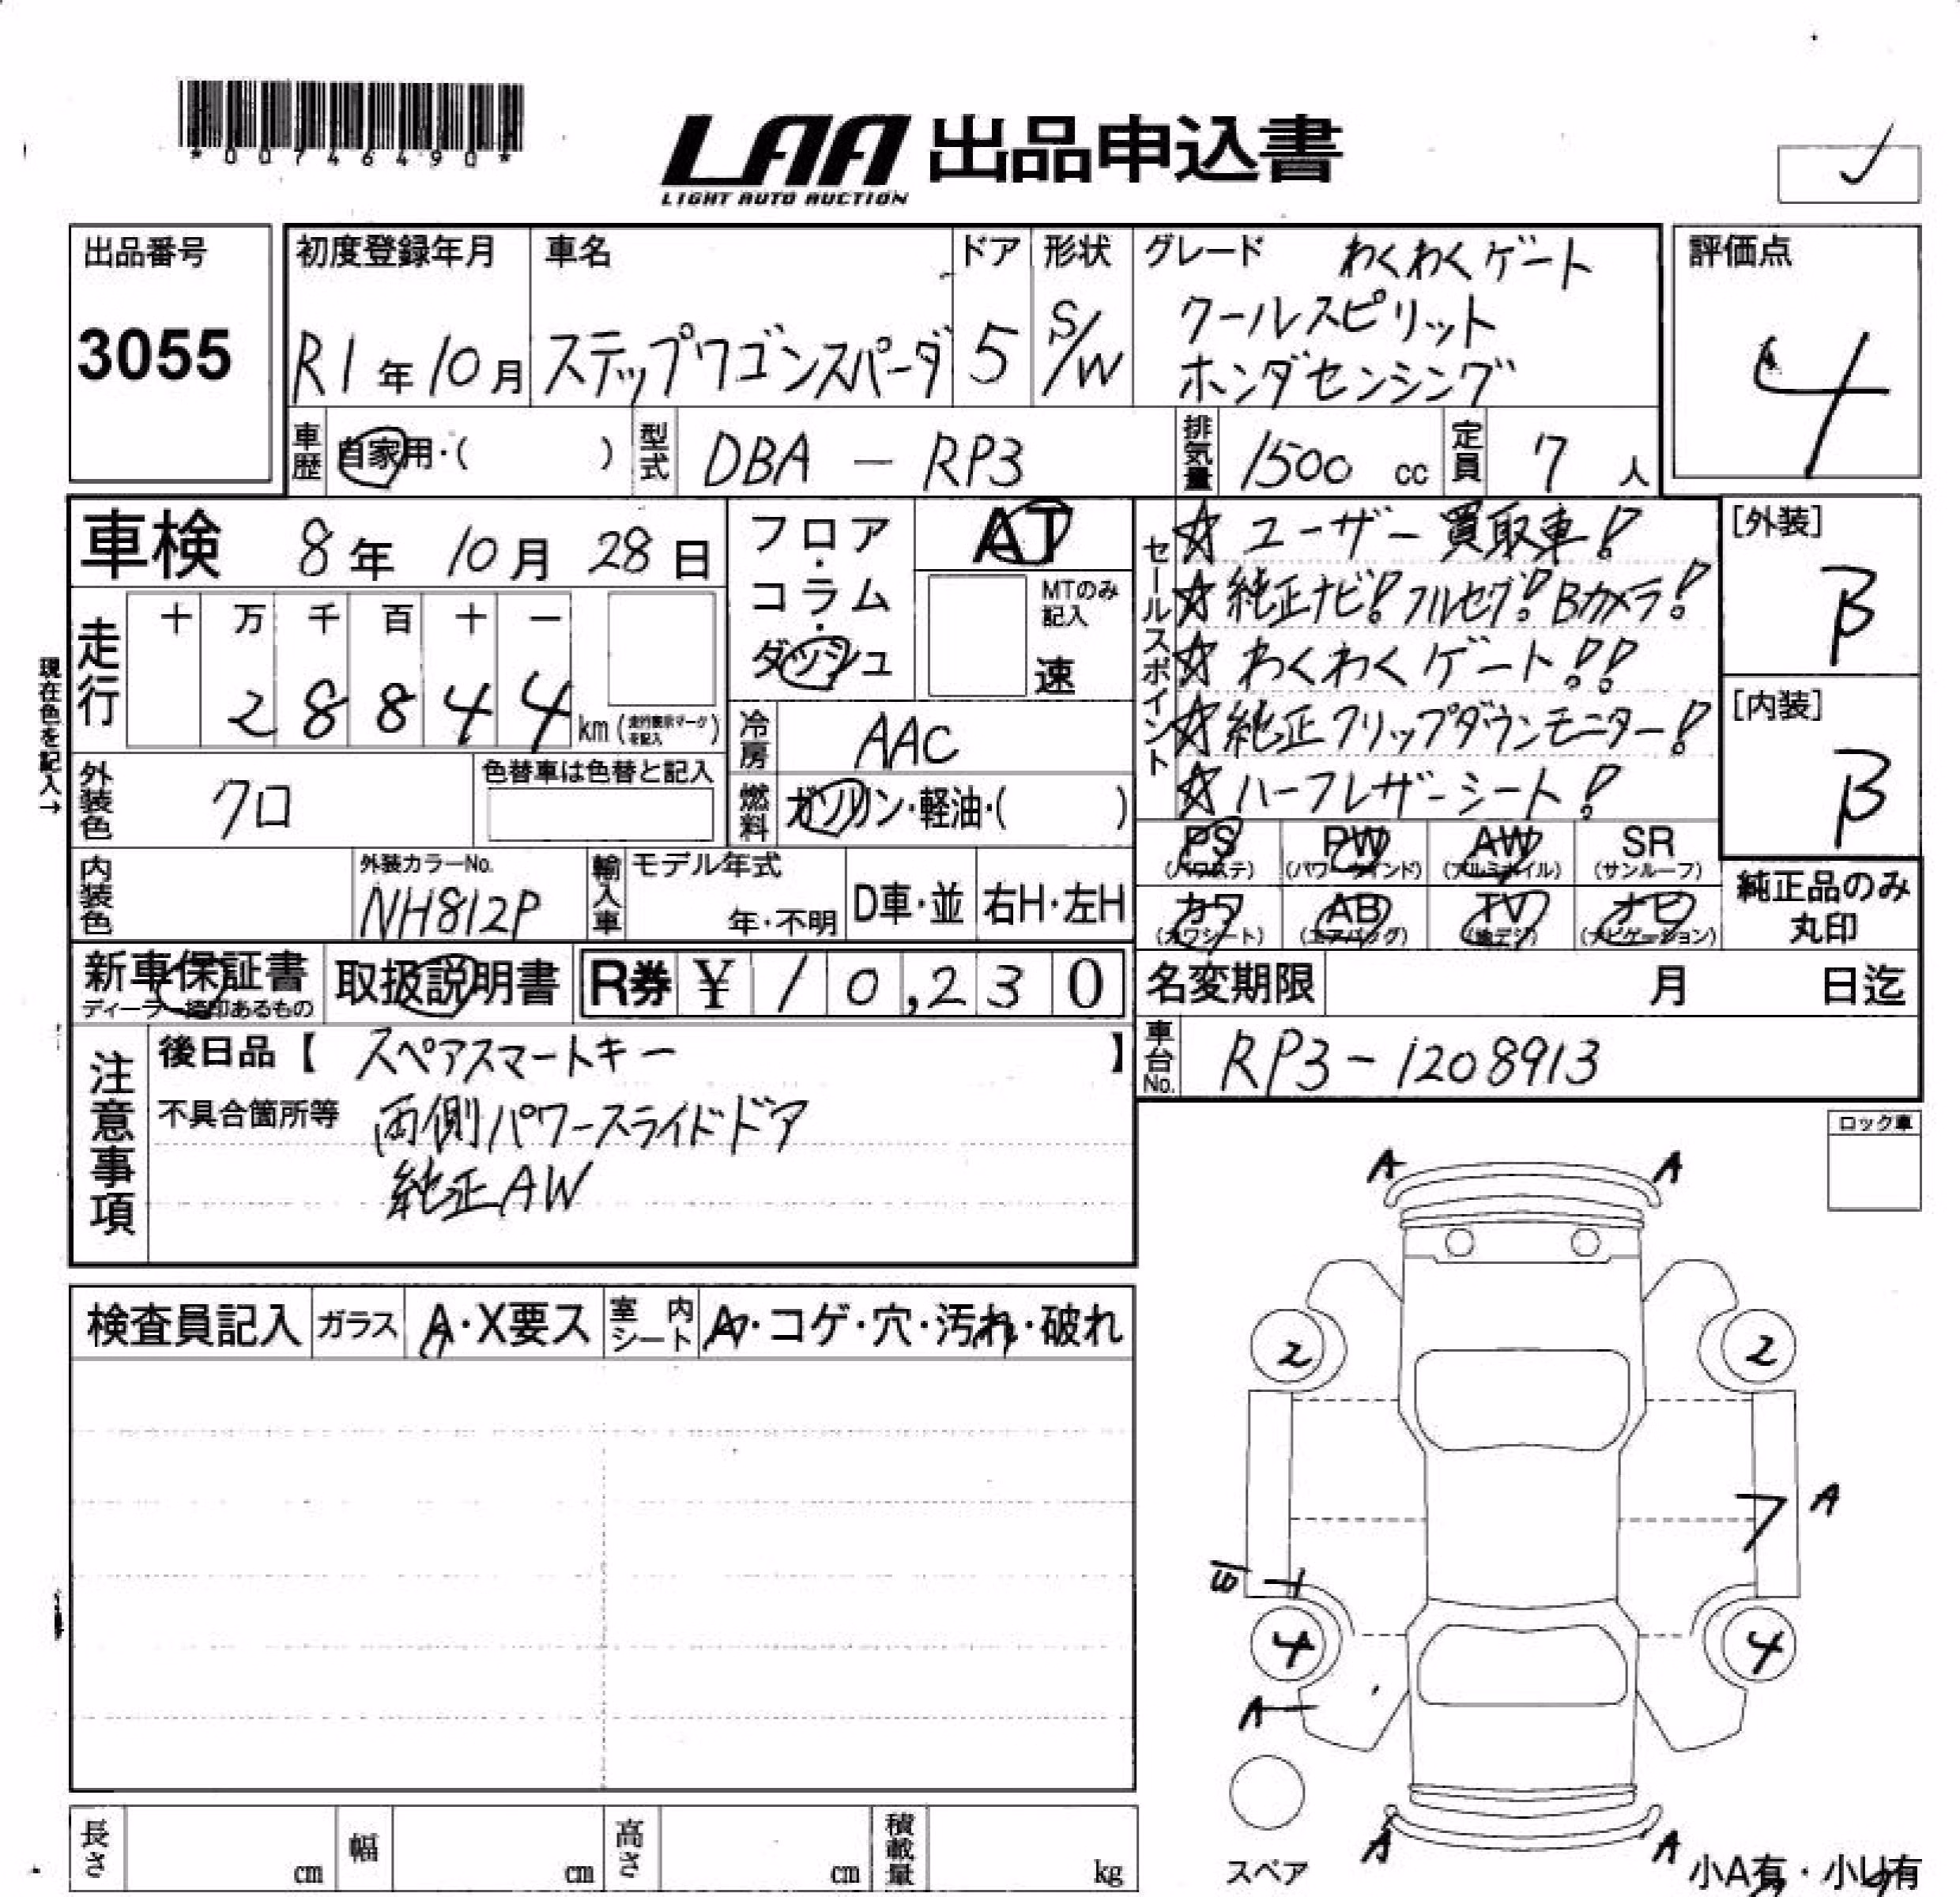 *00746490*
LAA 出品申込書
LIGHT AUTO AUCTION
出品番号
3055
初度登録年月
R1年10月
車名
ステップワゴンスパーダ
ドア
5
形状
S/W
グレード わくわくゲート
クールスピリット
ホンダセンシング
評価点
4
車歴 自家用・( )
型式 DBA - RP3
排気量 1500 cc
定員 7 人
車検 8年 10月 28日
フロア・コラム・ダッシュ
AT
MTのみ記入
速
セールスポイント
☆ユーザー買取車!
☆純正ナビ!フルセグ!Bカメラ!
☆わくわくゲート!!
☆純正フリップダウンモニター!
☆ハーフレザーシート!
[外装]
B
[内装]
B
現在色を記入→
走行 十 万 千 百 十 一
2 8 8 4 4 km (走行表示マークを記入)
冷房 AAC
外装色 クロ
色替車は色替と記入
燃料 ガソリン・軽油・( )
PS (パワステ) PW (パワーウインド) AW (アルミホイル) SR (サンルーフ)
カワ (カワシート) AB (エアバッグ) TV (地デジ) ナビ (ナビゲーション)
純正品のみ丸印
内装色
外装カラーNo.
NH812P
輸入車 モデル年式
年・不明
D車・並 右H・左H
新車保証書
ディーラー捺印あるもの
取扱説明書
R券 ¥ 10,230
名変期限 月 日迄
車台No. RP3-1208913
注意事項
後日品【 スペアスマートキー 】
不具合箇所等 両側パワースライドドア
純正AW
ロック車
検査員記入 ガラス A・X要ス 室内シート A・コゲ・穴・汚れ・破れ
A A
2 2
A
4 4
A
A A
スペア
小A有・小U有
長さ cm 幅 cm 高さ cm 積載量 kg